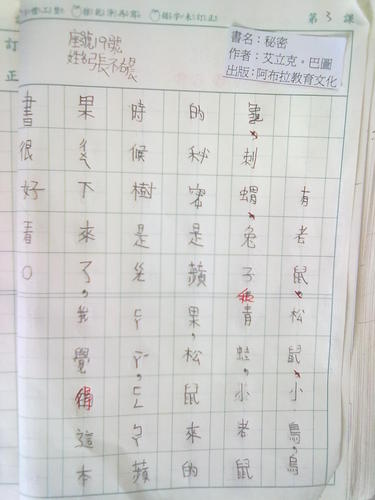 第 3 課
書名：秘密
作者：艾立克。巴圖
出版：阿布拉教育文化
座號19號
姓名張
有老鼠、松鼠、小鳥、烏
龜、刺蝟、兔子青蛙、小老鼠
的秘密是蘋果，松鼠來的
時候樹是蘋
果下來了，我覺得這本
書很好看。
訂正